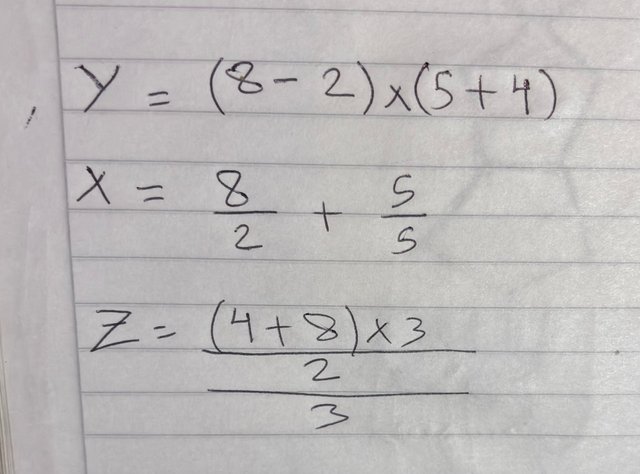 Y = (8 - 2) × (5 + 4)
X = 8/2 + 5/5
Z = (((4 + 8) × 3)/2)/3